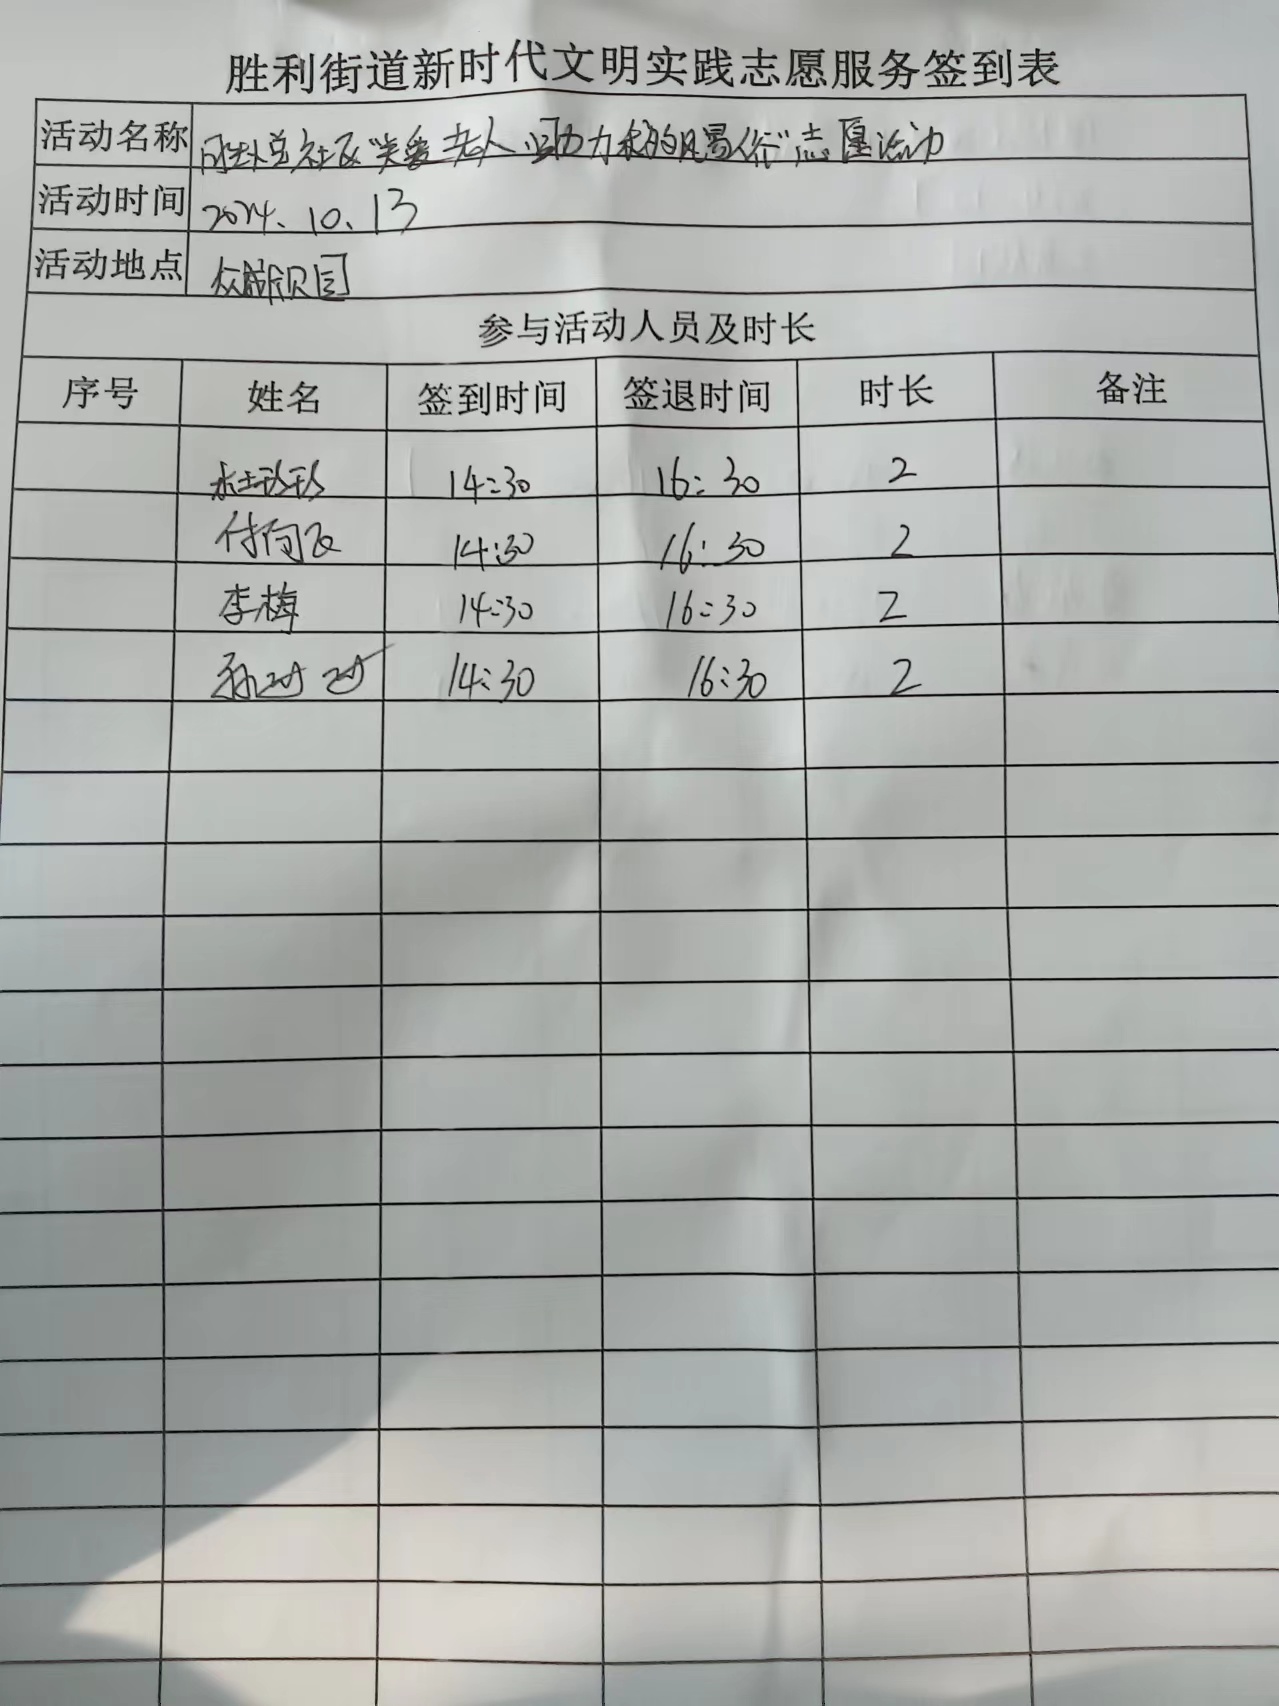 胜利街道新时代文明实践志愿服务签到表
活动名称 社区"关爱老人、助力移风易俗"志愿活动
活动时间 2024.10.13
活动地点
参与活动人员及时长
序号 姓名 签到时间 签退时间 时长 备注
14:30 16:30 2
付向飞 14:30 16:30 2
李梅 14:30 16:30 2
孙 14:30 16:30 2